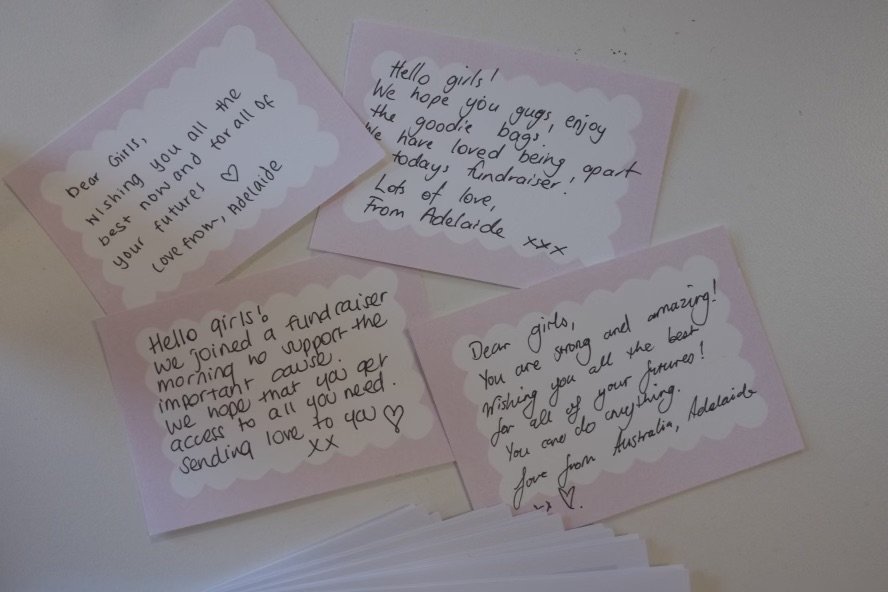 Dear Girls,
Wishing you all the
best now and for all of
your futures ♡
Love from, Adelaide
Hello girls!
We hope you gugs, enjoy
the goodie bags.
We have loved being apart
todays fundraiser!
Lots of love,
From Adelaide xxx
Hello girls!
We joined a fundraiser
morning to support the
important cause.
We hope that you get
access to all you need.
Sending love to you ♡
xx
Dear girls,
You are strong and amazing!
Wishing you all the best
for all of your futures!
You can do anything.
Love from Australia, Adelaide
♡.